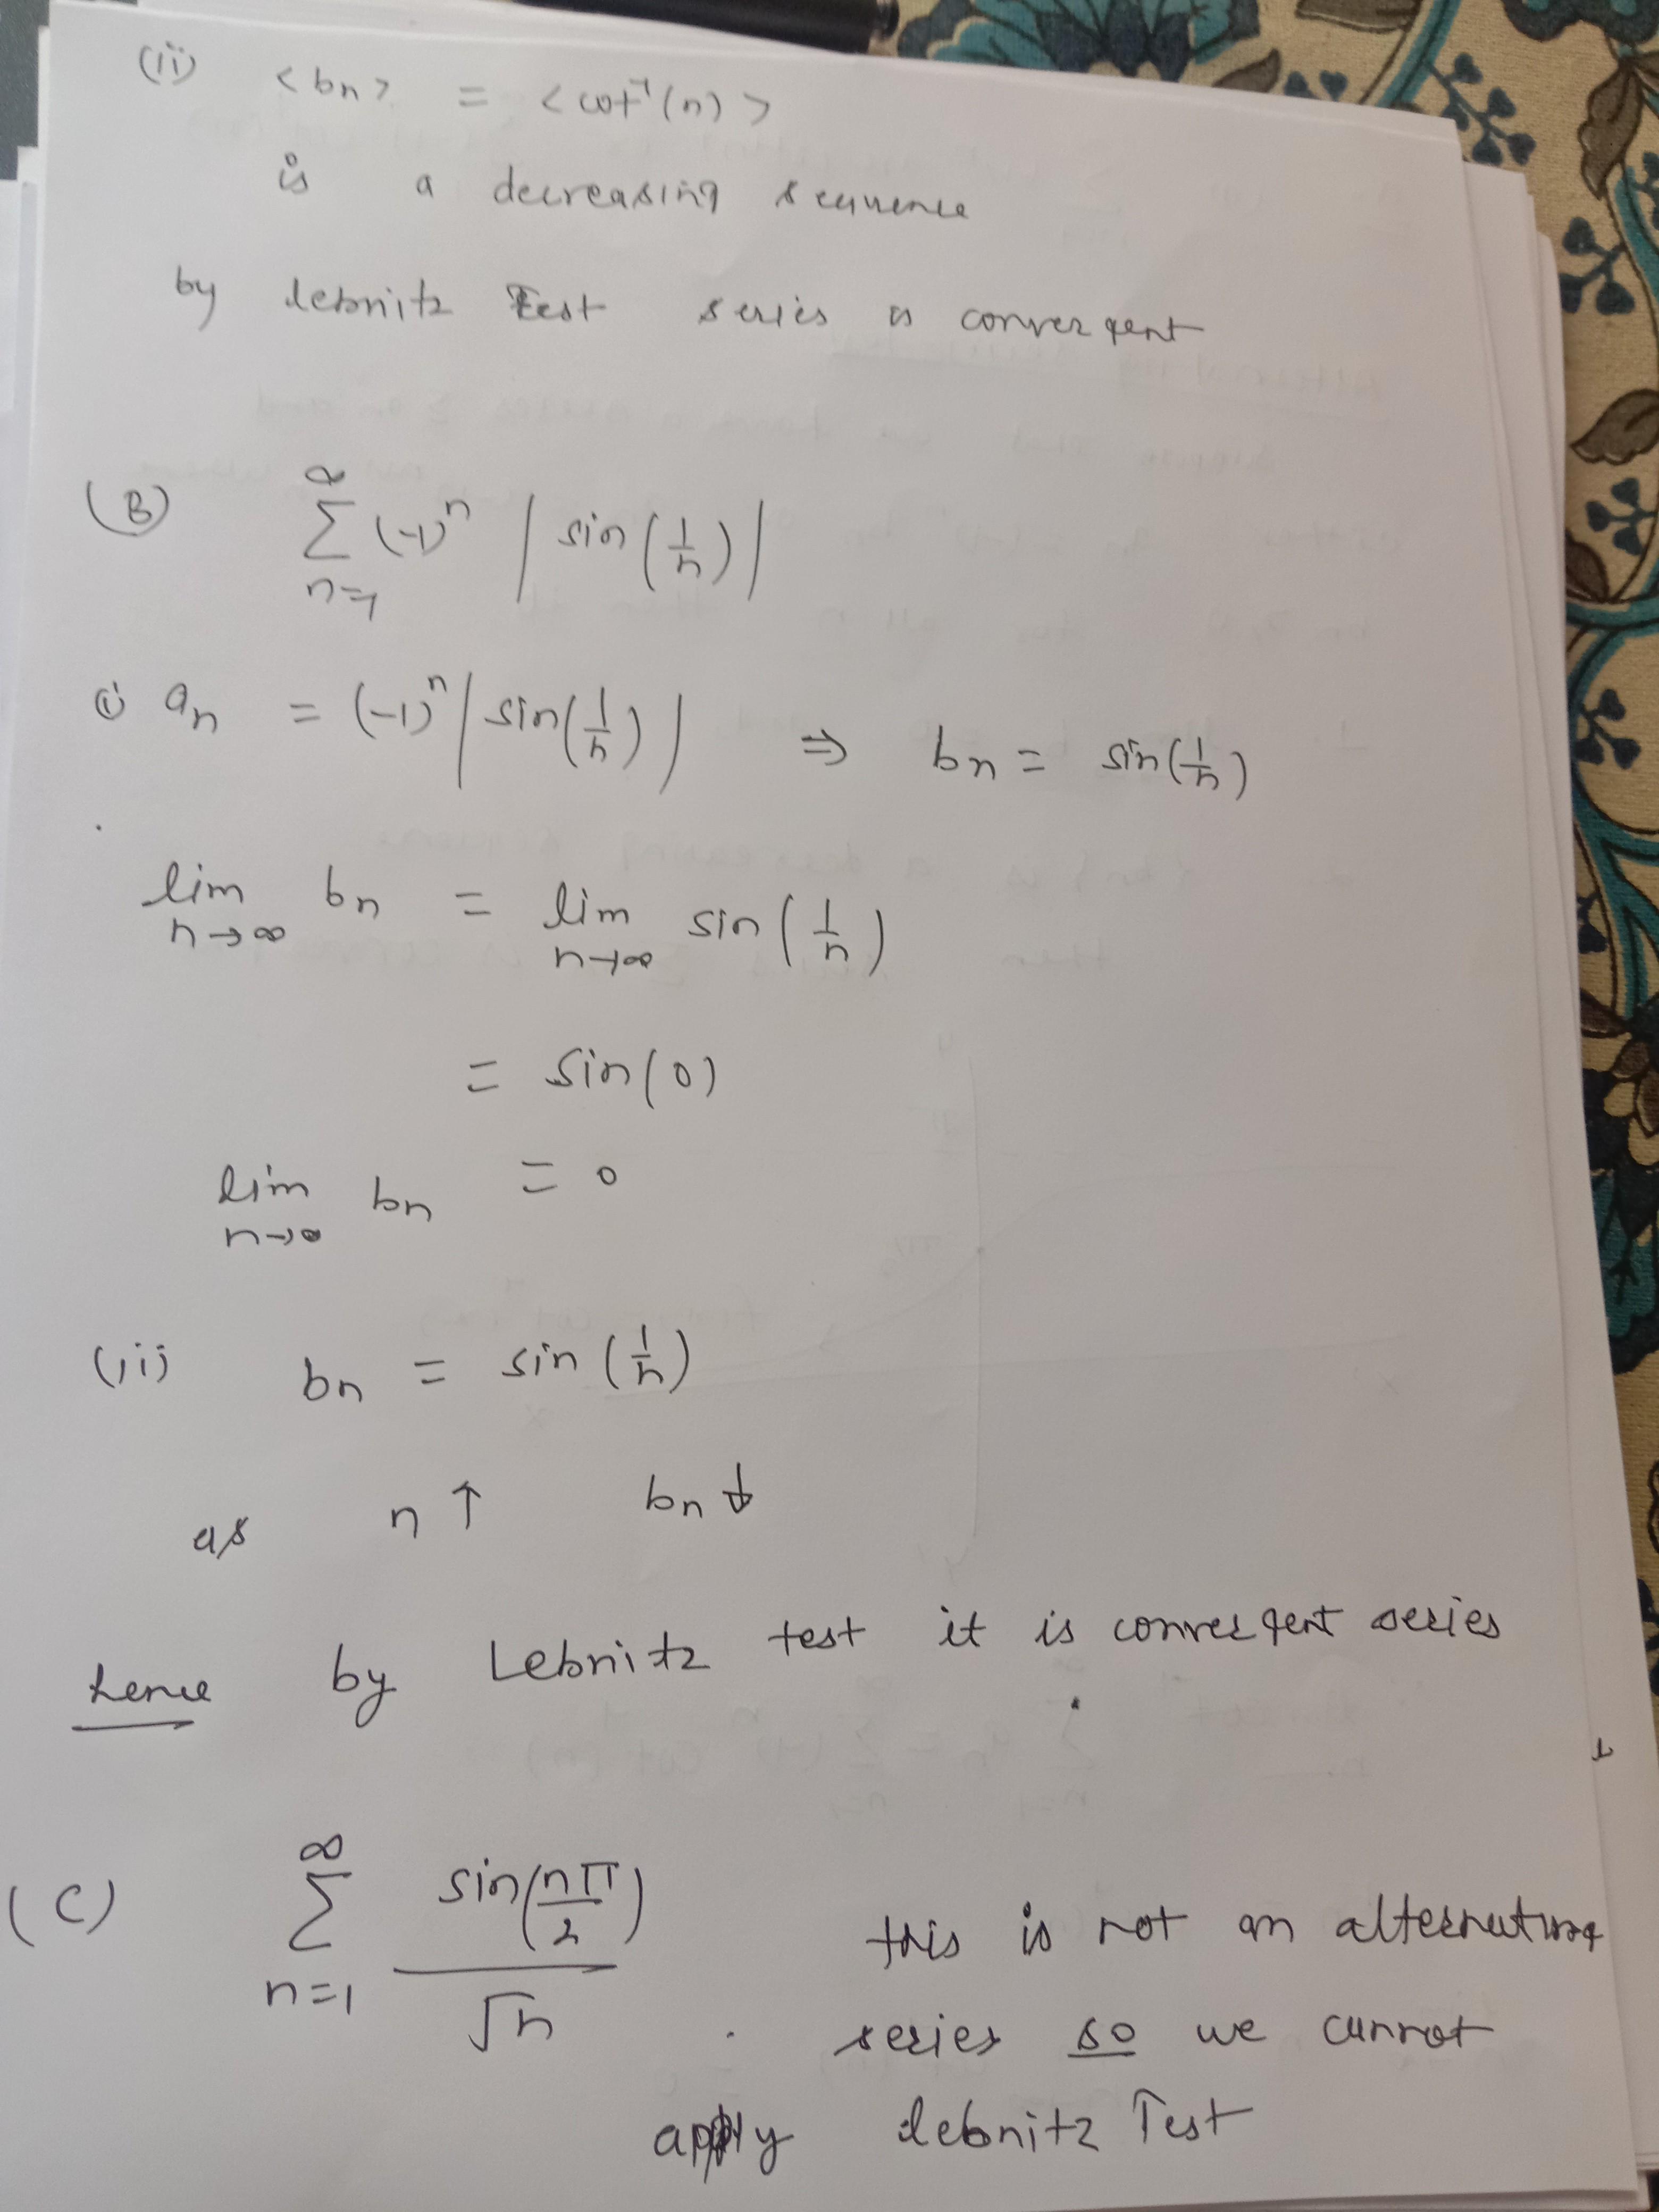 (ii) <bn> = <cot⁻¹(n)>
is a decreasing sequence
by lebnitz Test series is convergent
(B) ∞∑n=1 (-1)ⁿ |sin(1/n)|
(i) an = (-1)ⁿ |sin(1/n)| ⇒ bn = sin(1/n)
lim n→∞ bn = lim n→∞ sin(1/n)
= sin(0)
lim n→∞ bn = 0
(ii) bn = sin(1/n)
as n↑ bn↓
hence by Lebnitz test it is convergent series
(C) ∞∑n=1 sin(nπ/2)/√n this is not an alternating
series so we cannot
apply lebnitz Test